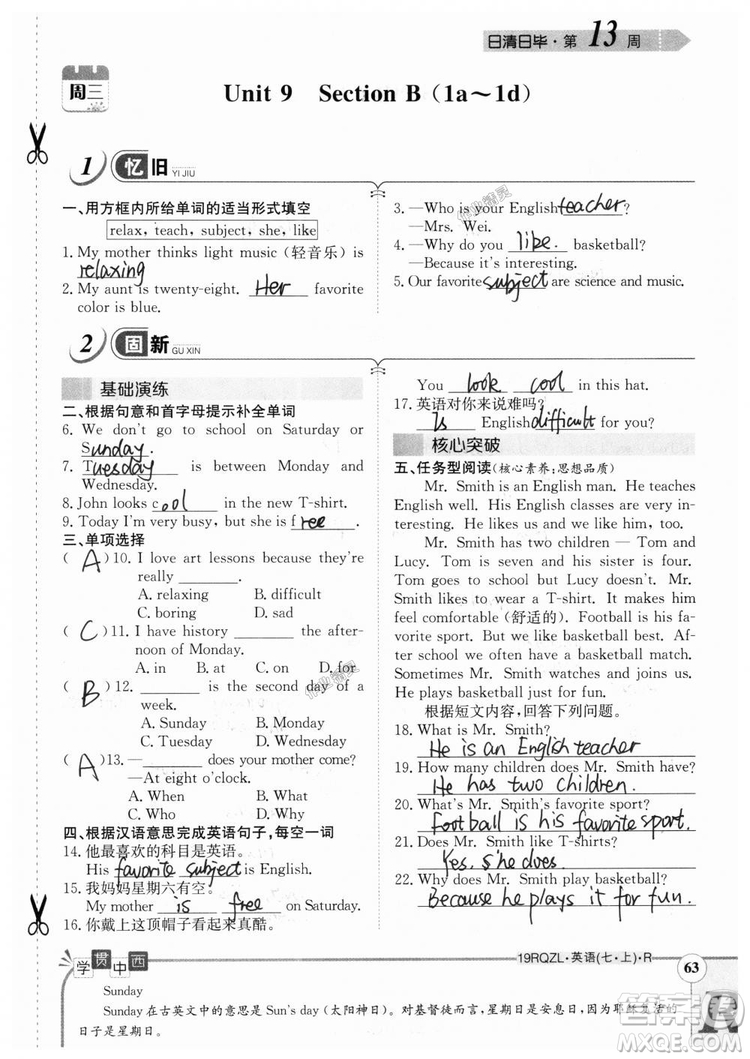 日清日毕·第13周
周三
Unit 9 Section B (1a～1d)
1 忆旧 YI JIU
一、用方框内所给单词的适当形式填空
relax, teach, subject, she, like
1. My mother thinks light music (轻音乐) is
relaxing
2. My aunt is twenty-eight. Her favorite
color is blue.
3. —Who is your English teacher?
—Mrs. Wei.
4. —Why do you like. basketball?
—Because it's interesting.
5. Our favorite subject are science and music.
2 固新 GU XIN
基础演练
二、根据句意和首字母提示补全单词
6. We don't go to school on Saturday or
Sunday.
7. Tuesday is between Monday and
Wednesday.
8. John looks cool in the new T-shirt.
9. Today I'm very busy, but she is free.
三、单项选择
( A )10. I love art lessons because they're
really ______.
A. relaxing B. difficult
C. boring D. sad
( C )11. I have history ______ the after-
noon of Monday.
A. in B. at C. on D. for
( B )12. ______ is the second day of a
week.
A. Sunday B. Monday
C. Tuesday D. Wednesday
( A )13. —______ does your mother come?
—At eight o'clock.
A. When B. What
C. Who D. Why
四、根据汉语意思完成英语句子,每空一词
14. 他最喜欢的科目是英语。
His favorite subject is English.
15. 我妈妈星期六有空。
My mother is free on Saturday.
16. 你戴上这顶帽子看起来真酷。
You look cool in this hat.
17. 英语对你来说难吗?
Is English difficult for you?
核心突破
五、任务型阅读(核心素养:思想品质)
Mr. Smith is an English man. He teaches
English well. His English classes are very in-
teresting. He likes us and we like him, too.
Mr. Smith has two children — Tom and
Lucy. Tom is seven and his sister is four.
Tom goes to school but Lucy doesn't. Mr.
Smith likes to wear a T-shirt. It makes him
feel comfortable (舒适的). Football is his fa-
vorite sport. But we like basketball best. Af-
ter school we often play basketball match.
Sometimes Mr. Smith watches and joins us.
He plays basketball just for fun.
根据短文内容,回答下列问题。
18. What is Mr. Smith?
He is an English teacher
19. How many children does Mr. Smith have?
He has two children.
20. What's Mr. Smith's favorite sport?
Football is his favorite sport.
21. Does Mr. Smith like T-shirts?
Yes. she does.
22. Why does Mr. Smith play basketball?
Because he plays it for fun.
学贯中西
19RQZL·英语(七·上)·R
63
Sunday
Sunday在古英文中的意思是Sun's day (太阳神日)。对基督徒而言,星期日是安息日,因为耶稣复活的
日子是星期日。
MXQE.COM